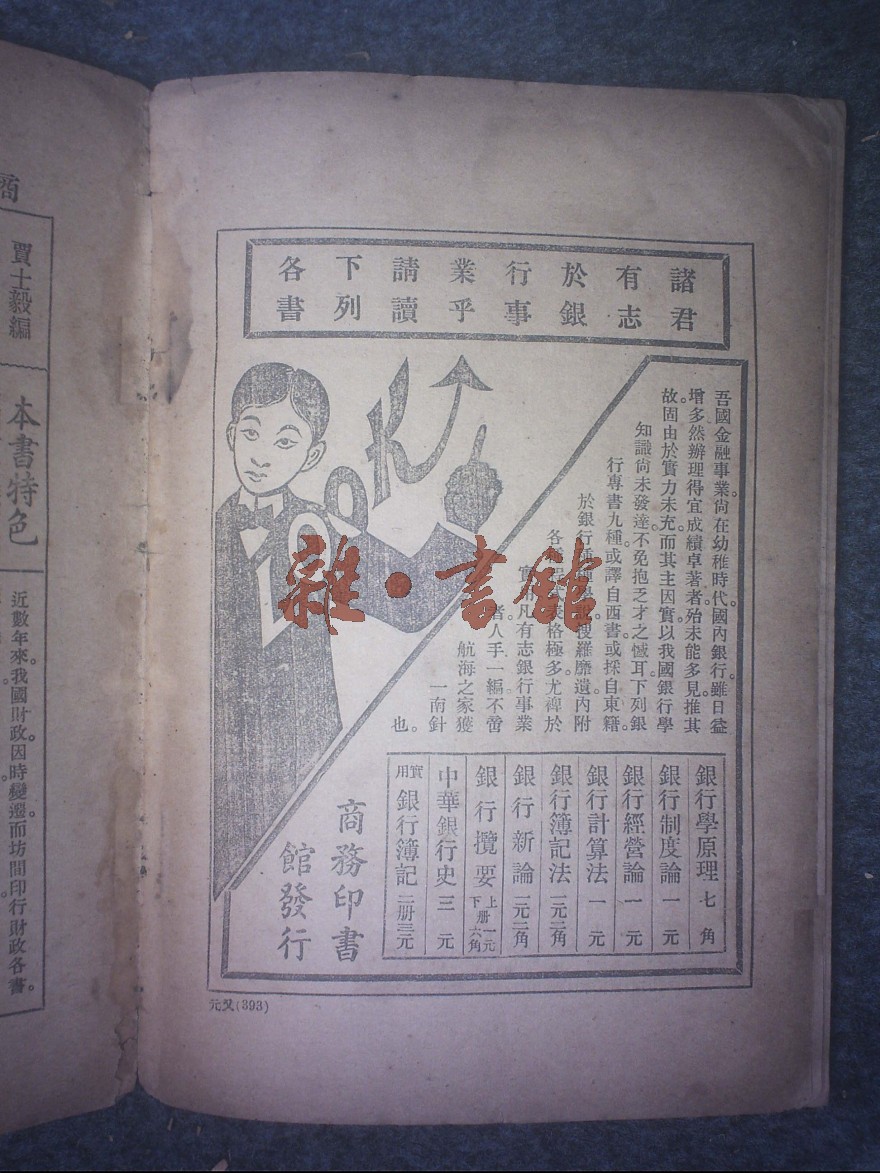 諸君
有志
於銀
行事
業乎
請讀
下列
各書
LOOK
吾國金融事業。尚在幼稚時代。國內銀行。雖日益
增多。然辦理得宜成績卓著者。殆未能多見。推其
故。固由於實力未充。而其主因。實以我國銀行學
知識尚未發達。不免抱乏才之憾耳。下列銀
行專書九種。或譯自西書。或採自東籍。
於銀行 搜羅靡遺。內附
各 格極多。尤裨於
實 凡有志銀行事業
者。人手一編。不啻
航海之家獲
一南針
也。
銀行學原理 七角
銀行制度論 一元
銀行經營論 一元
銀行計算法 一元
銀行簿記法 一元二角
銀行新論 一元二角
銀行攬要 上冊一元 下冊六角
中華銀行史 三元
實用銀行簿記 二册三元
商務印書
館發行
元(393)
雜·書館
商
賈士毅編
本書特色
近數年來。我國財政。因時變遷。而坊間印行財政各書。